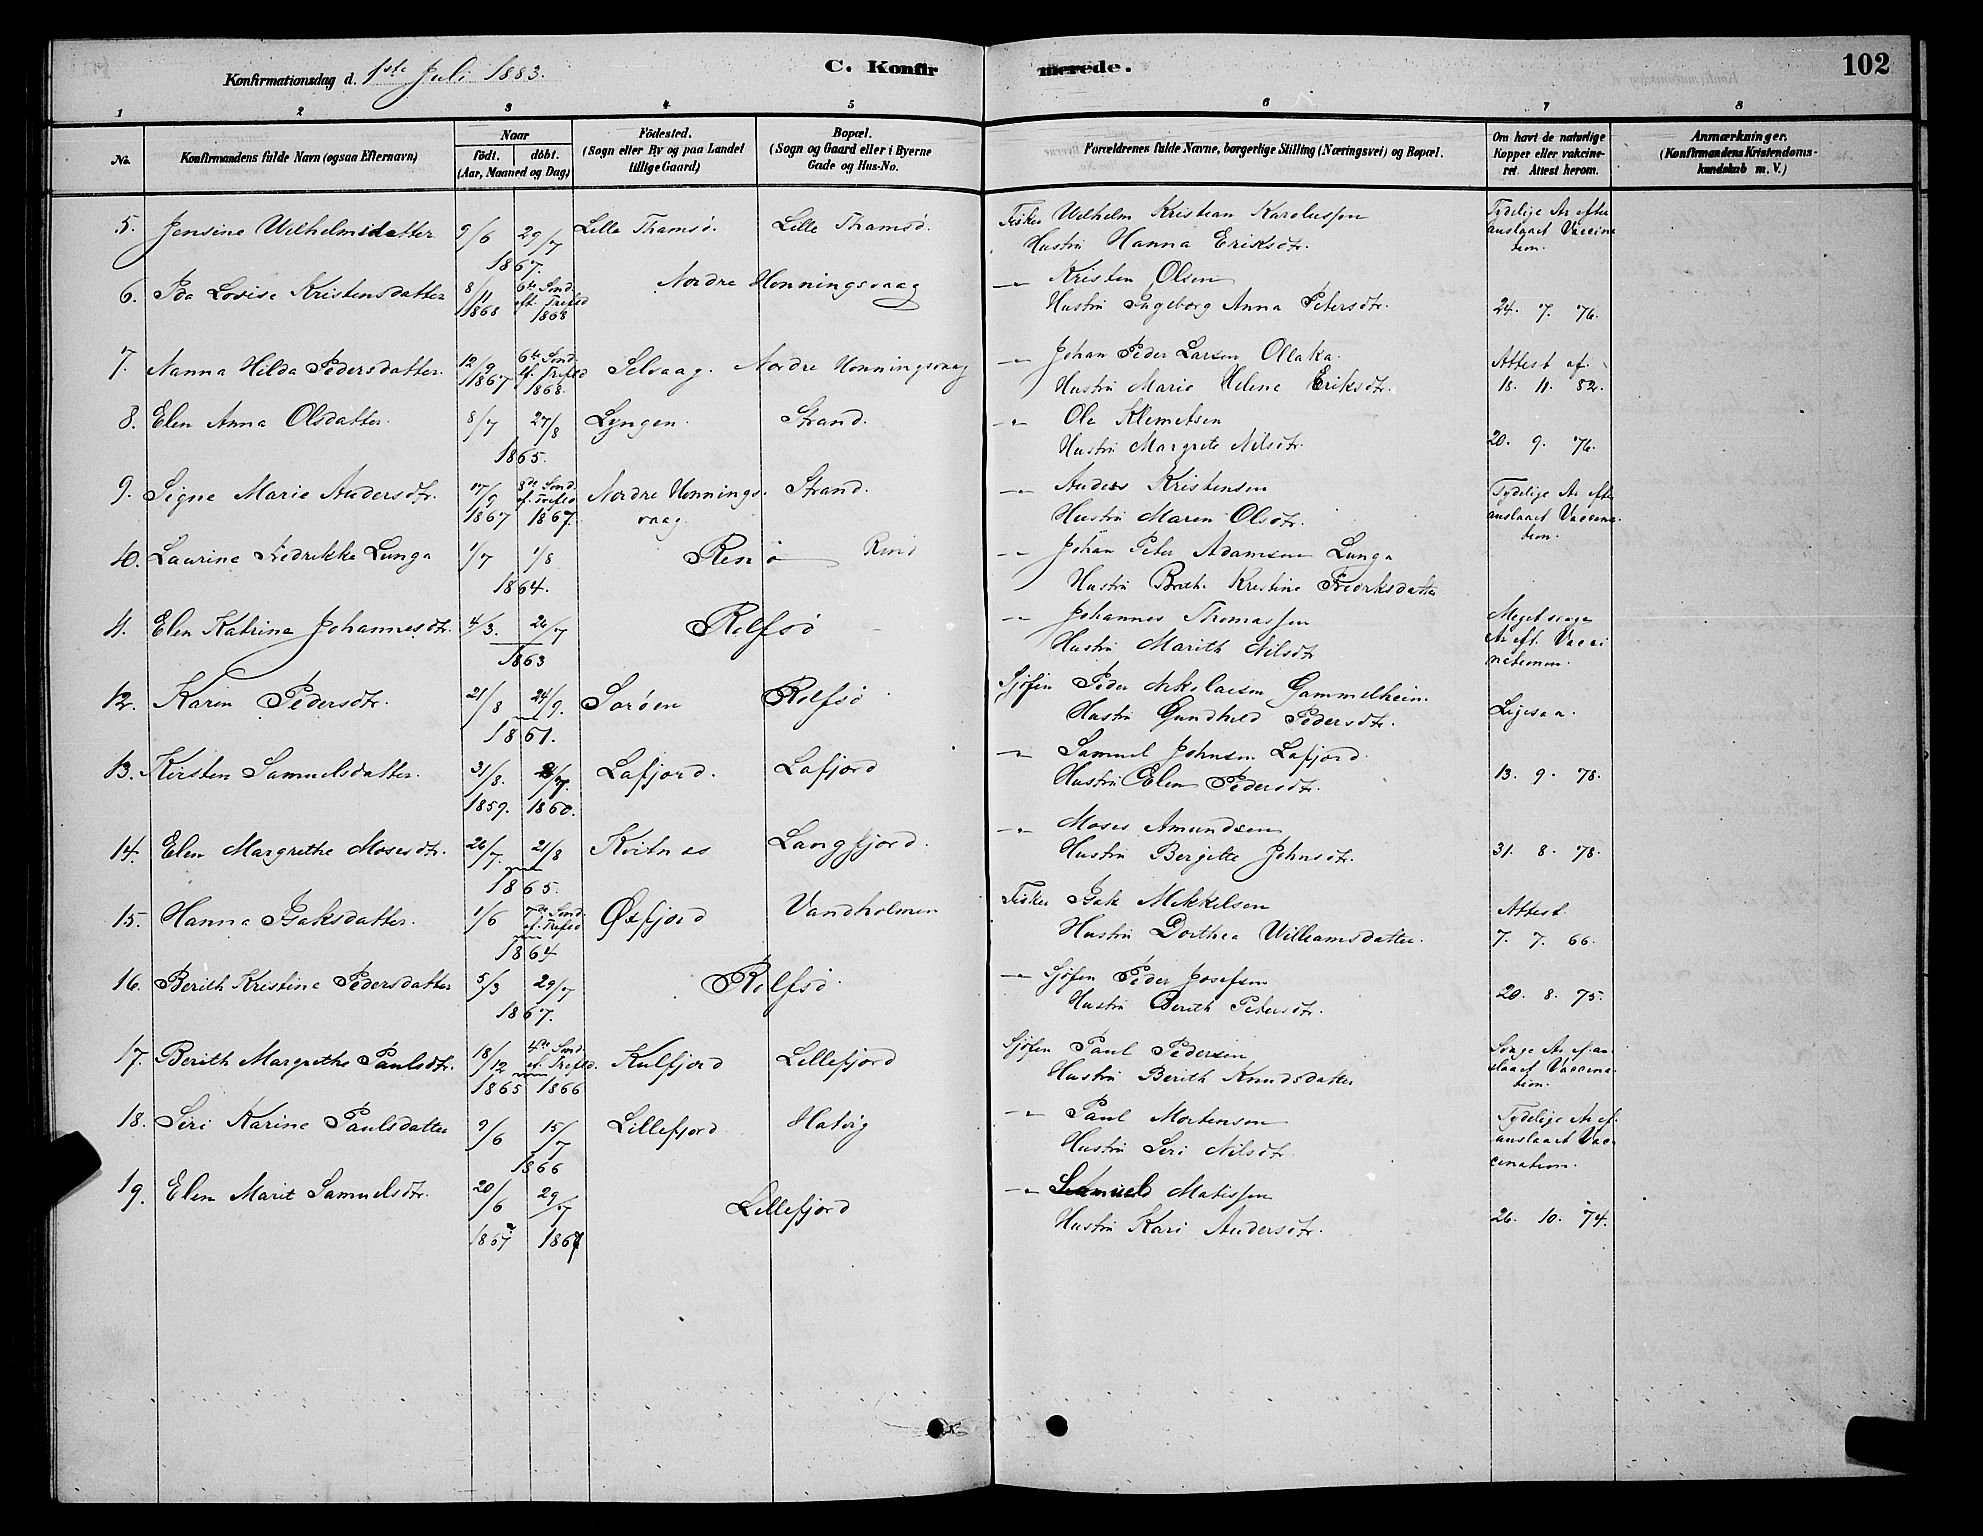 Konfirmationsdag d. 1ste Juli 1883.
C. Konfirmerede.
102
1 2 3 4 5 6 7 8
No.
Konfirmandens fulde Navn (ogsaa Efternavn)
Naar
født. døbt.
(Aar, Maaned og Dag)
Fødested.
(Sogn eller By og paa Landet
tillige Gaard)
Bopæl.
(Sogn og Gaard eller i Byerne
Gade og Hus-No.
Forældrenes fulde Navne, borgerlige Stilling (Næringsvei) og Bopæl.
Om havt de naturlige
Kopper eller vakcine-
ret. Attest herom.
Anmærkninger.
(Konfirmandens Kristendoms-
kundskab m. V.)
5. Jensine Wilhelmsdatter 9/6 29/7 1867. Lille Thamsø. Lille Thamsø. Fisker Wilhelm Kristian Karolussen
Hustru Hanna Eriksdtr.
Tydelige Ar efter
anslaaet Vaccina
tion.
6. Ida Lovise Kristensdatter 8/11 1868 6te Sønd. eft. Trefod 1868 Nordre Honningsvaag -"- Kristen Olsen
Hustru Ingeborg Anna Petersdtr. 24. 7. 76.
7. Nanna Hilda Pedersdatter. 12/9 1867 6te Sønd. ef. Trefod 1868. Selvaag. Nordre Honningsvaag -"- Johan Peder Larsen Ollaka.
Hustru Marie Helene Eriksdtr.
Attest af
18. 11. 82.
8. Elen Anna Olsdatter. 8/7 27/8 1865. Lyngen. Strand. -"- Ole Klemetsen
Hustru Margrete Nilsdtr. 20. 9. 76.
9. Signe Marie Andersdtr. 17/9 1867 8de Sønd. ef. Trefod 1867. Nordre Honnings-
vaag Strand. -"- Anders Kristensen
Hustru Maren Olsdtr.
Tydelige Ar efter
anslaaet Vaccina-
tion.
10. Laurine Fredrikke Lunga 1/7 1/8 1864. Renø -"- Johan Peter Adamsen Lunga
Hustru Brith. Kristine Fredriksdatter
11. Elen Katrina Johannesdtr. 4/3. 26/7 1863 Rolfsø -"- Johannes Thomassen
Hustru Marith Nilsdtr
Meget svage
Ar eft. Vacci
nationen.
12. Karen Pedersdtr. 21/8 24/9. 1861. Sørøen Rolfsø Sjøfin Peder Nikolaesen Gammelheim
Hustru Gundhild Pedersdtr. Ligesaa.
13. Kirsten Samuelsdatter. 31/8. 1859. 1860. Lafjord. Lafjord -"- Samuel Johnsen Lafjord.
Hustru Elen Pedersdtr. 13. 9. 78.
14. Elen Margrethe Mosesdtr. 26/7. 21/8 1865. Kvitnes Langfjord. -"- Moses Amundsen
Hustru Bergitte Johnsdtr. 31. 8. 78.
15. Hanna Isaksdatter. 1/6 7de Sønd. ef. Trefod 1864 Øxfjord Vandholmen Fisker Isak Mikkelsen
Hustru Dorthea Williamsdatter.
Attest
7. 7. 66.
16. Berith Kristine Pedersdatter 5/3 29/7 1867. Rolfsø. -"- Sjøfin Peder Josefsen
Hustru Berith Petersdtr. 20. 8. 75.
17. Berith Margrethe Paulsdtr. 18/12 1865 4de Sønd. ef. Trefod. 1866 Kulfjord Lillefjord Sjøfin Paul Pedersen
Hustru Berith Knudsdatter
Svage Ar ef an-
slaaet Vaccina-
tion.
18. Siri Karine Paulsdatter 9/6 15/7 1866 Lillefjord Hatvig -"- Paul Mortensen
Hustru Siri Nilsdtr.
Tydelige Ar ef.
anslaaet Vac-
cination.
19. Elen Marit Samuelsdtr. 20/6 1867 29/7 1867 Lillefjord -"- Samuel Matissen
Hustru Kari Andersdtr. 26. 10. 74.